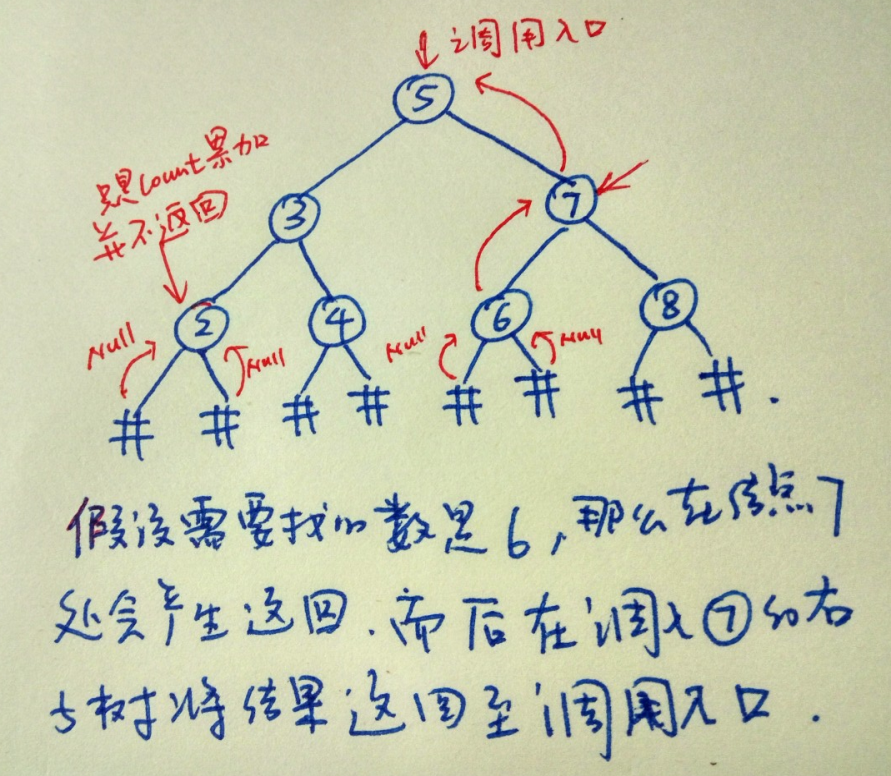 调用入口
5
只是count累加
并不返回
3
7
2
4
6
8
Null
Null
Null
Null
# # # # # # # #.
假设需要找的数是6,那么在结点7
处会产生返回.而后在调入⑦的右
子树将结果返回至调用入口.